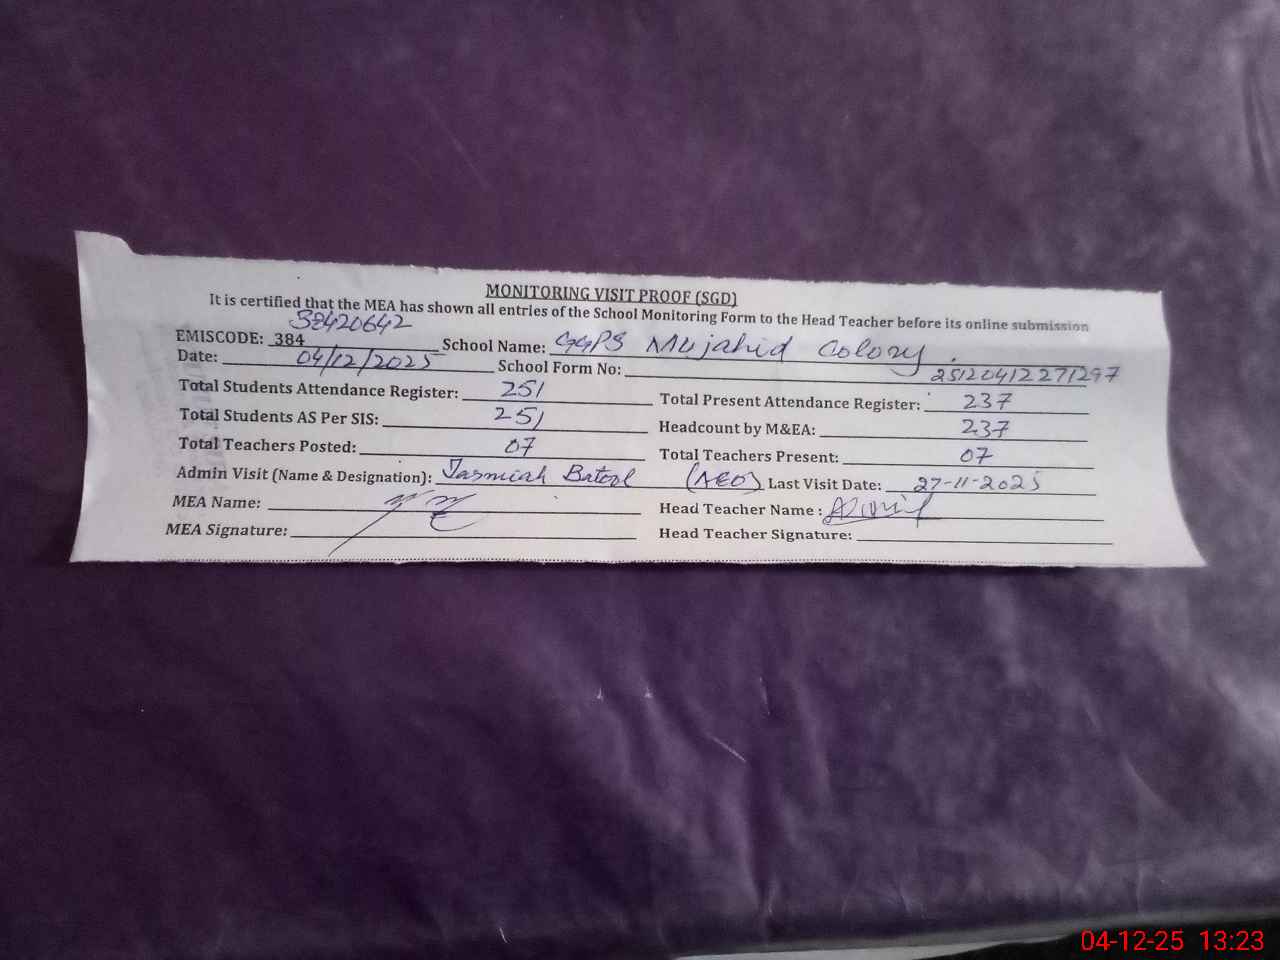 MONITORING VISIT PROOF (SGD)
It is certified that the MEA has shown all entries of the School Monitoring Form to the Head Teacher before its online submission
38420642
EMISCODE: 384 School Name: GGPS Mujahid Colony.
Date: 04/12/2025 School Form No: 25120412271297
Total Students Attendance Register: 251 Total Present Attendance Register: 237
Total Students AS Per SIS: 251 Headcount by M&EA: 237
Total Teachers Posted: 07 Total Teachers Present: 07
Admin Visit (Name & Designation): Batool (AEO) Last Visit Date: 27-11-2025
MEA Name: Head Teacher Name :
MEA Signature: Head Teacher Signature:
04-12-25 13:23